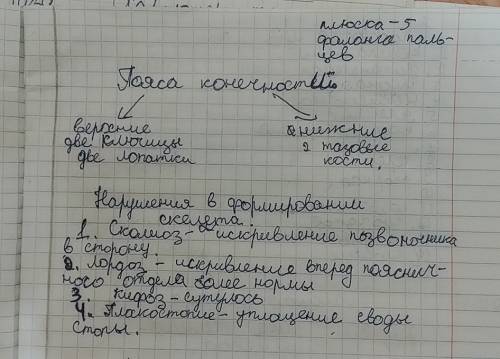 плюска - 5
фаланга паль-
цев
Пояса конечностий
верхние
две ключицы
две лопатки
нижние
2 тазовые
кости.
Нарушения в формировании
скелета.
1. Сколиоз - искривление позвоночника
в сторону.
2. Лордоз - искривление вперед пояснич-
ного отдела более нормы
3. кифоз - сутулось
4. Плакостопие - уплощение своды
стопы.